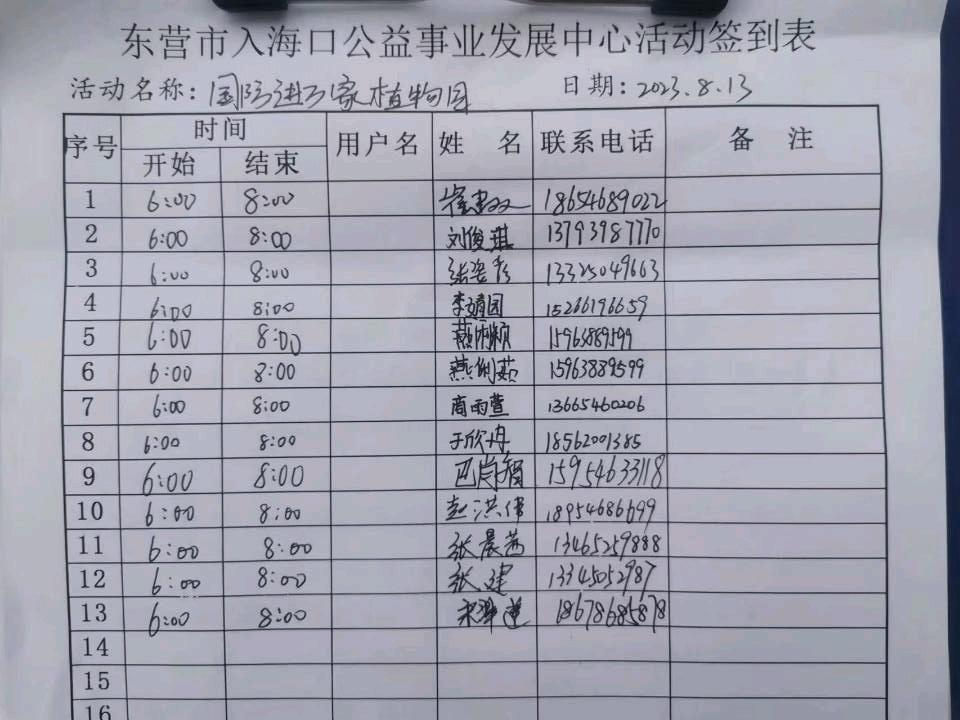 东营市入海口公益事业发展中心活动签到表
活动名称: 国防进万家植物园 日期: 2023.8.13
序号 时间 用户名 姓 名 联系电话 备 注
开始 结束
1 6:00 8:00 18654689022
2 6:00 8:00 刘俊琪 13793987770
3 6:00 8:00 张姿彤 13325049663
4 6:00 8:00 李靖园 15266196659
5 6:00 8:00 燕 15963889599
6 6:00 8:00 燕 15963889599
7 6:00 8:00 商雨萱 13665460206
8 6:00 8:00 于欣冉 18562001385
9 6:00 8:00 巴尚智 15954633118
10 6:00 8:00 赵洪伟 18954686699
11 6:00 8:00 张晨茜 13465259888
12 6:00 8:00 张建 13345052987
13 6:00 8:00 18678685878
14
15
16